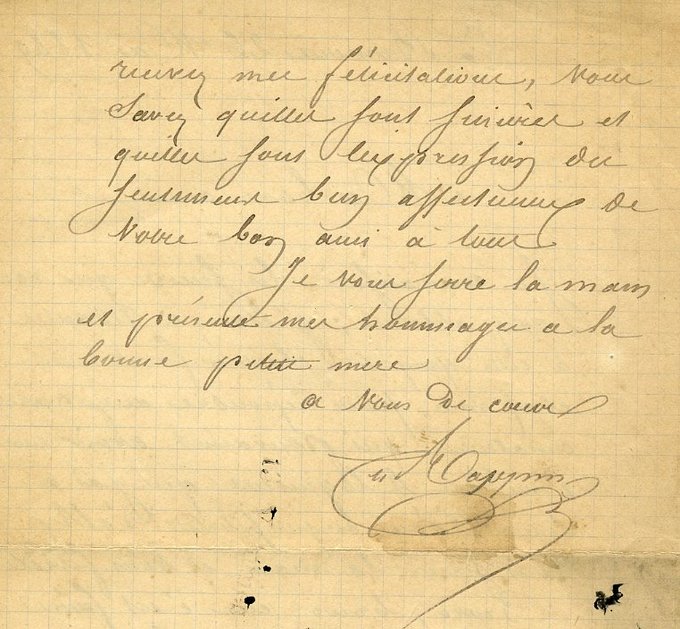 recevez mes félicitations, vous
savez quelles sont sincères et
quelles sont l'expression du
sentiment bien affectueux de
votre bon ami à tous
Je vous serre la main
et présente mes hommages a la
bonne petite mere
a vous de coeur